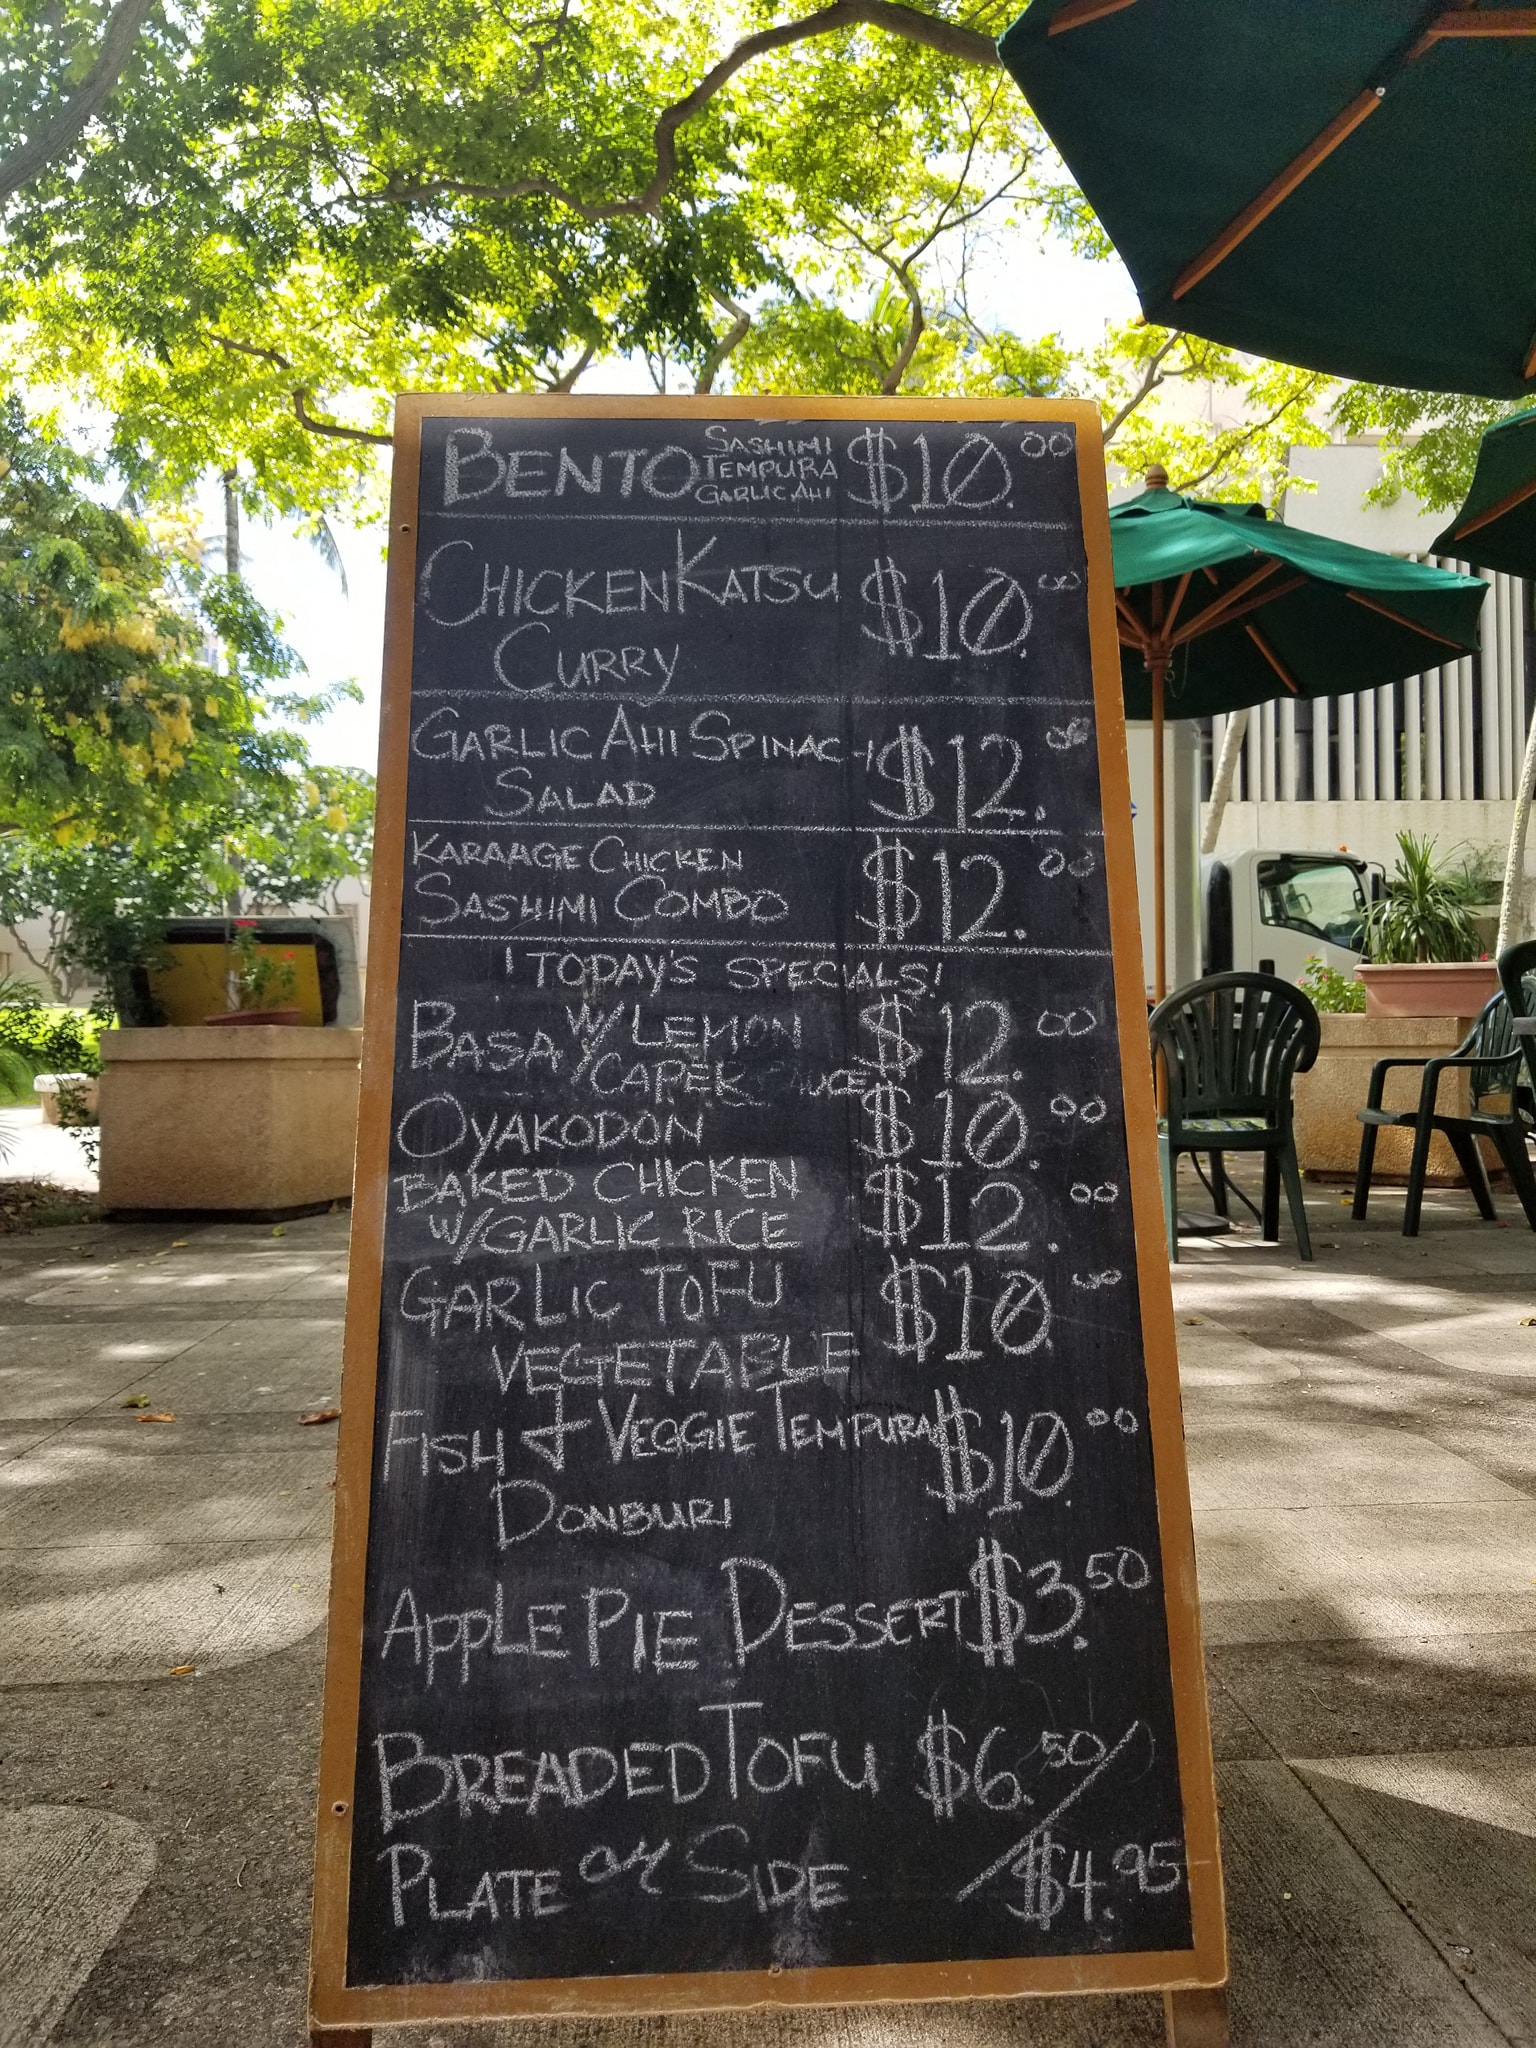 BENTO SASHIMI TEMPURA GARLIC AHI $10.00
CHICKEN KATSU $10.00
CURRY
GARLIC AHI SPINACH $12.00
SALAD
KARAAGE CHICKEN $12.00
SASHIMI COMBO
'TODAY'S SPECIALS!
BASA W/ LEMON $12.00
CAPER SAUCE
OYAKODON $10.00
BAKED CHICKEN $12.00
W/GARLIC RICE
GARLIC TOFU $10.00
VEGETABLE
FISH & VEGGIE TEMPURA $10.00
DONBURI
APPLE PIE DESSERT $3.50
BREADED TOFU $6.50/
PLATE or SIDE /$4.95